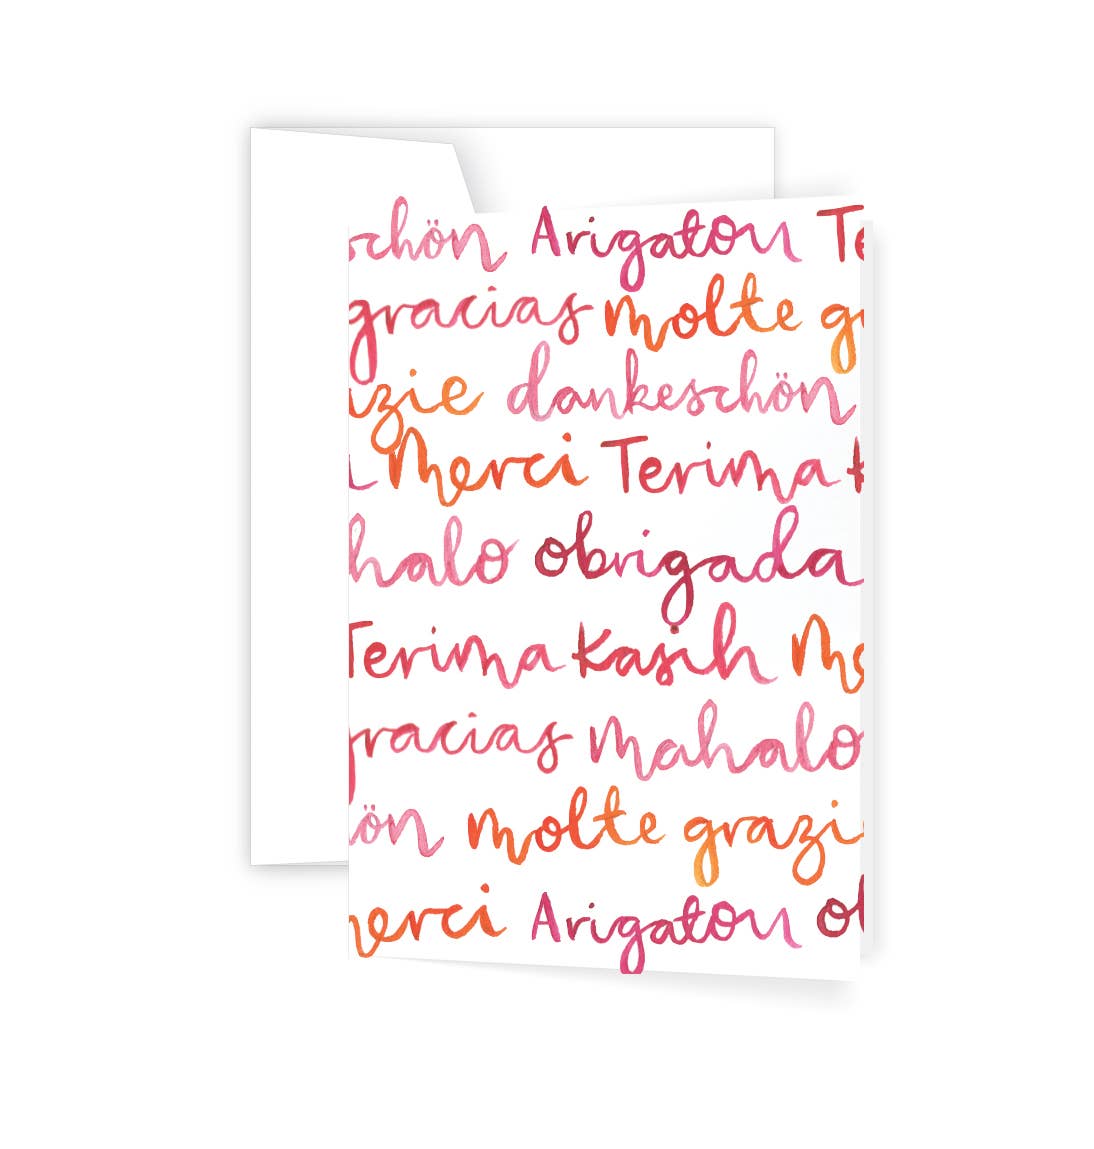 schön Arigatou Te
gracias molte gr
azie dankeschön
Merci Terima k
halo obrigada
Terima Kasih Me
gracias mahalo
ön molte grazi
merci Arigatou ob